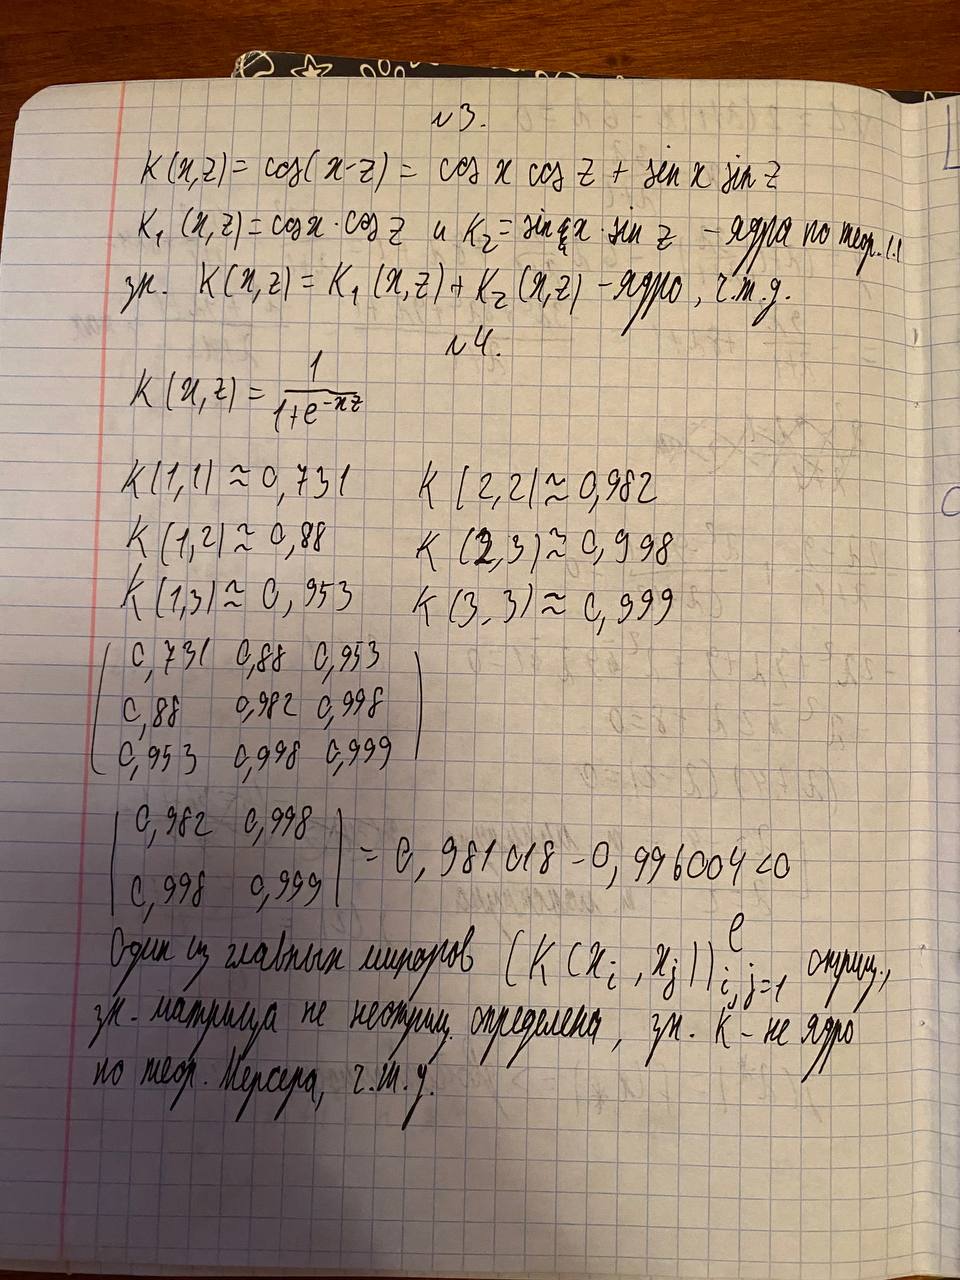 №3.
K(x,z) = cos(x-z) = cos x cos z + sin x sin z
K₁(x,z) = cos x · cos z и K₂ = sin x · sin z - ядра по теор. 1.1
зн. K(x,z) = K₁(x,z) + K₂(x,z) - ядро, ч.т.д.
№4.
K(x,z) = 1/(1+e^{-xz})
K(1,1) ≈ 0,731 K(2,2) ≈ 0,982
K(1,2) ≈ 0,88 K(2,3) ≈ 0,998
K(1,3) ≈ 0,953 K(3,3) ≈ 0,999
0,731 0,88 0,953
0,88 0,982 0,998
0,953 0,998 0,999
|0,982 0,998|
|0,998 0,999| = 0,981018 - 0,996004 < 0
Один из главных миноров (K(x_i, x_j))^l_{i,j=1} отриц.,
зн. матрица не неотриц. определена, зн. K - не ядро
по теор. Мерсера, ч.т.д.